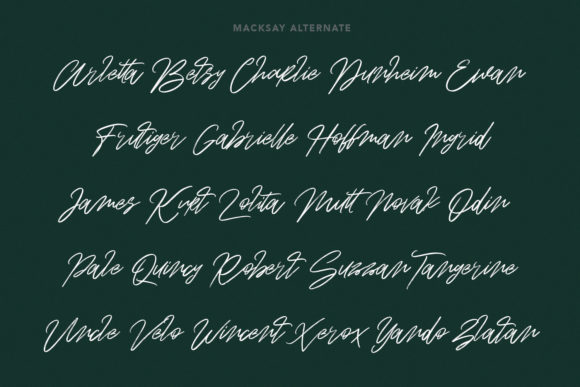 MACKSAY ALTERNATE
Arletta Betsy Charlie Dunheim Ewan
Frutiger Gabrielle Hoffman Ingrid
James Kurt Lolita Mutt Novak Odin
Pale Quincy Robert Suzzan Tangerine
Uncle Velo Wincent Xerox Yando Zlatan